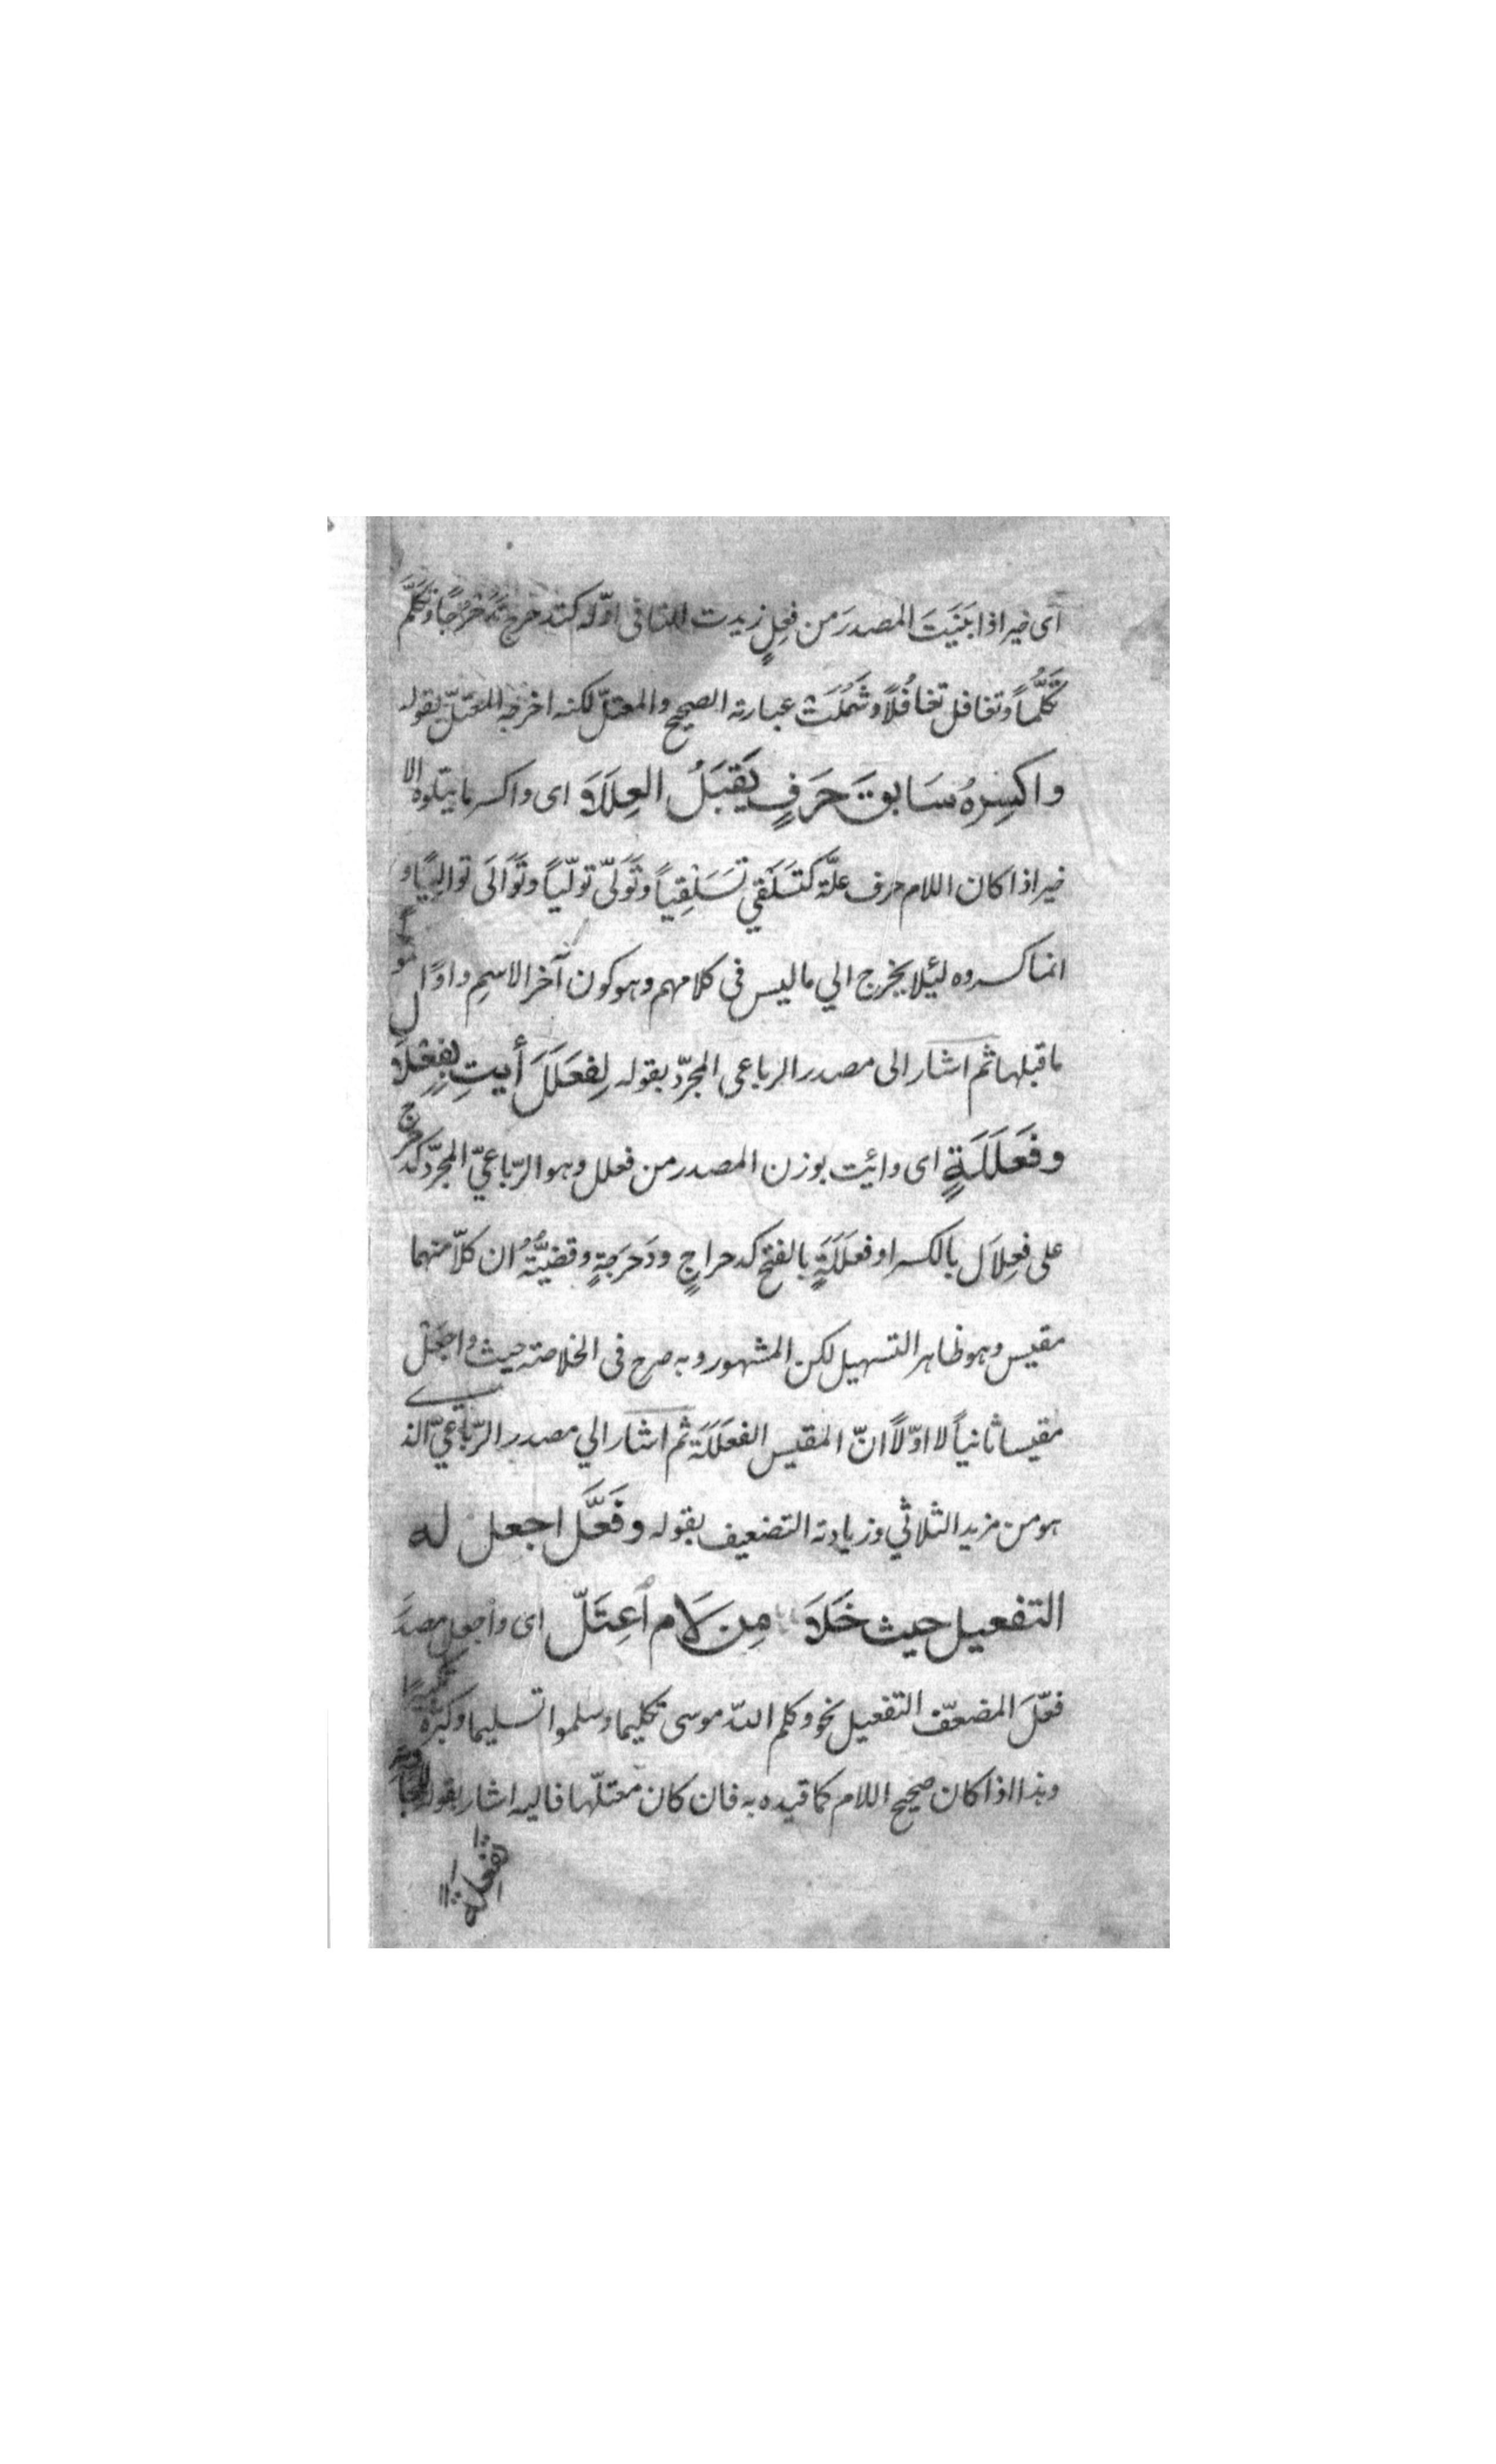 اى خير اذا بَنَيتَ المصدرَ من فعِلٍ زيدت التا فى اوّله كتدحرج تَدَحْرُجًا وتَكَلَّمَ
تَكَلُّماً وتغافل تغافُلًا وشَمَلَتْ عبارته الصحيح والمعتلّ لكنه اخرجه المعتلّ بقوله
واكسِرهُ سَابقَ حَرَفٍ يَقبَلُ العِلَلَا اى واكسر ما يتلوه الا
خير اذا كان اللام حرف علّة كَتَسَلْقي تَسَلْقِياً وتَوَلىّ تولّياً وتَوَالَى تواليًا و
انما كسروه ليئلا يخرج الي ما ليس فى كلامهم وهو كون آخر الاسمِ واوًا
ما قبلها ثم اشار الى مصدر الرباعى المجرّد بقوله لِفَعلَلَ أيتِ بفِعْلَالٍ
وفَعَلَلَةٍ اى وائيت بوزن المصدر من فعلل وهو الرّباعيّ المجرّد كدحرج
على فعِلاَل بالكسر او فعلَلَةٍ بالفتح كدحراجٍ ودَحَرَجَةٍ وقضيّتُهُ ان كلاّ منهما
مقيس وهو ظاهر التسهيل لكن المشهور وبه صرح فى الخلاصة حيث واجعَلْ
مقيسا ثانياً لا اوّلاً انّ المقيس الفعلَلَة ثم اشار الي مصدر الرّباعيّ الذي
هو من مزيد الثلاثي وزيادته التضعيف بقوله وفَعَّلَ اجعل له
التفعيل حيث خَلَا مِن لَام اعِتَلّ اى واجعل مصدَر
فعّلَ المضعّف التفعيل نحو وكلم اللّه موسى تكليما وسلموا تسليما وكبّره تكبيرًا
وهذا اذا كان صحيح اللام كما قيده به فان كان معتلّها فاليه اشار بقوله